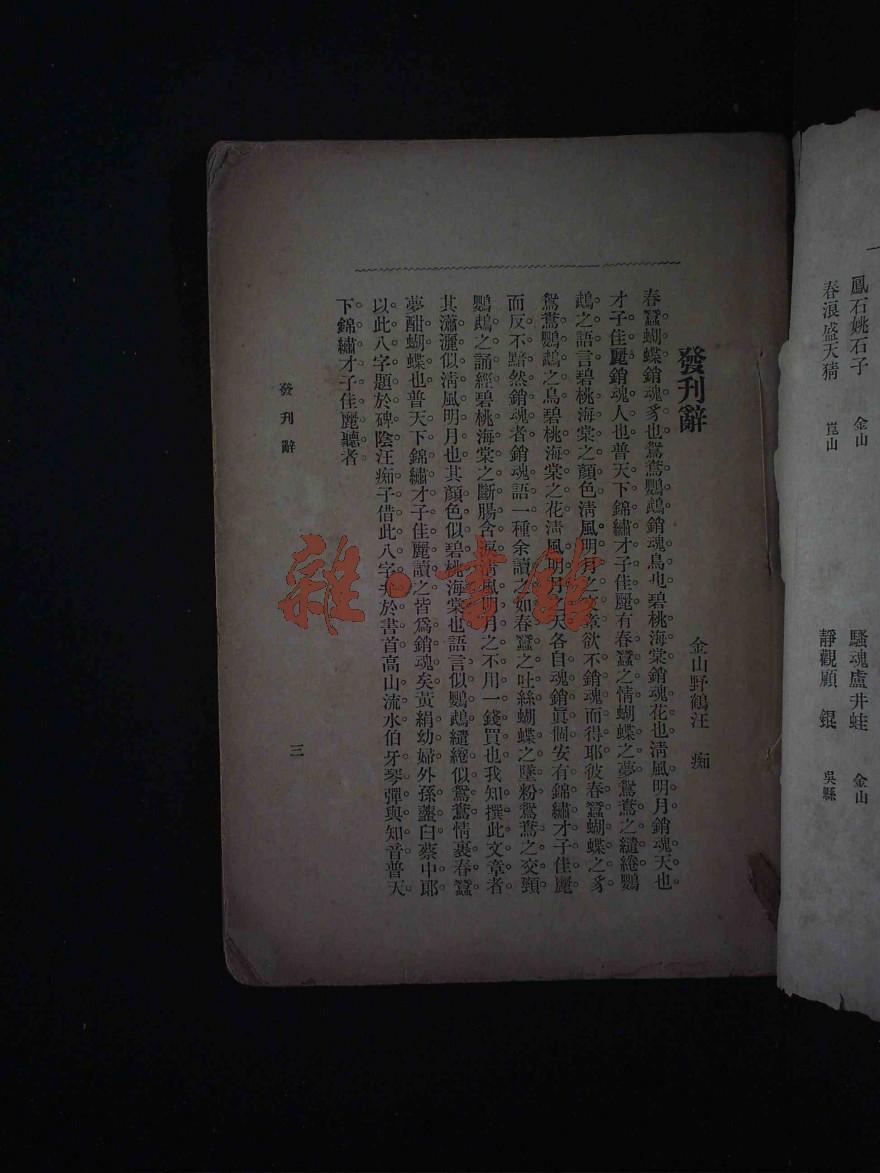 鳳石姚石子 金山
春浪盛天猜 崑山
騷魂盧井蛙 金山
靜觀顧 錕 吳縣
發刊辭
金山野鶴汪 痴
春蠶蝴蝶銷魂豸也鴛鴦鸚鵡銷魂鳥也碧桃海棠銷魂花也淸風明月銷魂天也
才子佳麗銷魂人也普天下錦繡才子佳麗有春蠶之情蝴蝶之夢鴛鴦之繾綣鸚
鵡之語言碧桃海棠之顏色淸風明月之 欲不銷魂而得耶彼春蠶蝴蝶之豸
鴛鴦鸚鵡之鳥碧桃海棠之花淸風明月之天各自魂銷眞個安有錦繡才子佳麗
而反不黯然銷魂者銷魂語一種余讀之如春蠶之吐絲蝴蝶之墜粉鴛鴦之交頸
鸚鵡之誦經碧桃海棠之斷腸含 淸風明月之不用一錢買也我知撰此文章者
其瀟灑似淸風明月也其顏色似碧桃海棠也語言似鸚鵡繾綣似鴛鴦情裹春蠶
夢酣蝴蝶也普天下錦繡才子佳麗讀之皆爲銷魂矣黃絹幼婦外孫虀臼蔡中郎
以此八字題於碑陰汪痴子借此八字弁於書首高山流水伯牙琴彈與知音普天
下錦繡才子佳麗聽者
發刊辭
三
雜·書館